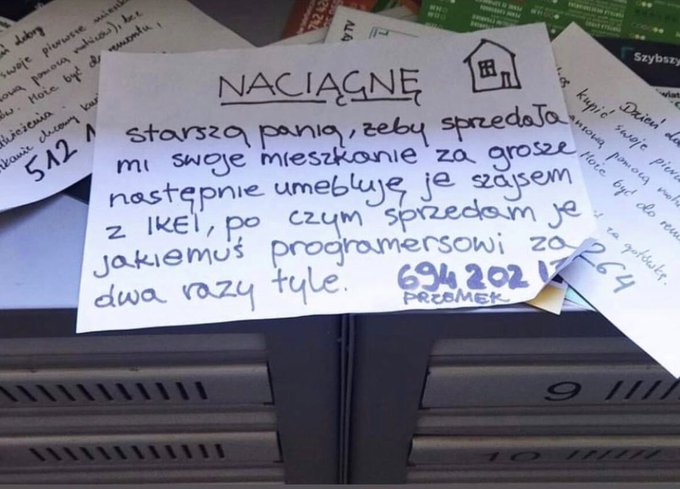 NACIĄGNĘ
starszą panią, żeby sprzedała
mi swoje mieszkanie za grosze
następnie umebluję je szajsem
z IKEI, po czym sprzedam je
jakiemuś programersowi za
dwa razy tyle. 694 202 1
PRZEMEK
dobry
swoje pierwsze
pomocą rodziców), bez
Może być do remontu!
512 1
Szybszy
Dzień
kupić swoje
pomocą
być do
za gotówkę.
264
9
10